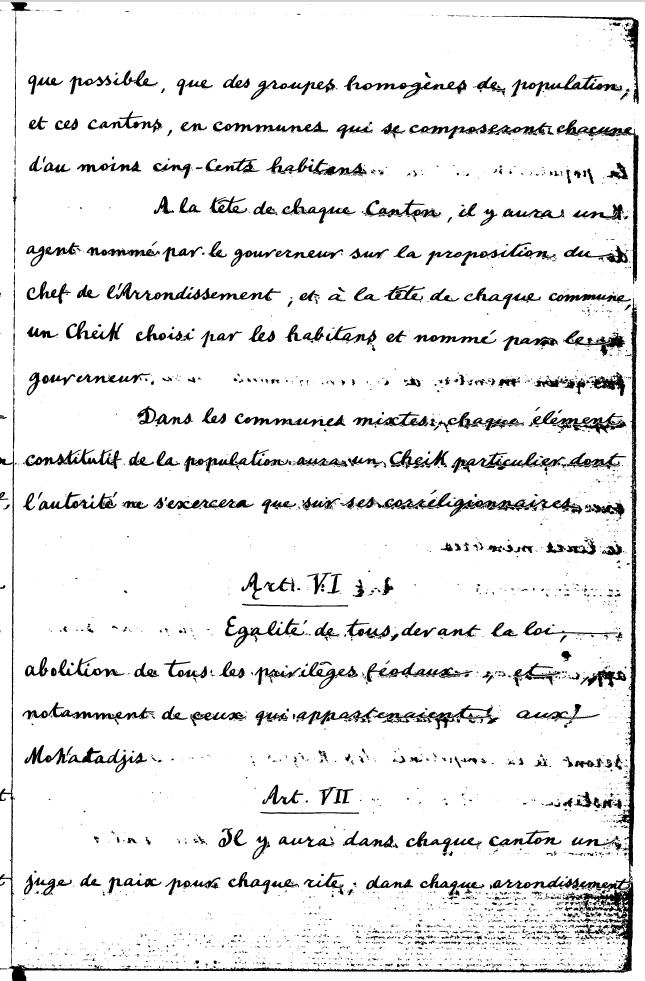 que possible, que des groupes homogènes de population,
et ces cantons, en communes qui se composeront chacune
d'au moins cinq-Cents habitans
A la tête de chaque Canton, il y aura un
agent nommé par le gouverneur sur la proposition du
chef de l'Arrondissement, et à la tête de chaque commune,
un CheiK choisi par les habitans et nommé par le
gouverneur.
Dans les communes mixtes, chaque élément
constitutif de la population aura un CheiK particulier dont
l'autorité ne s'exercera que sur ses corréligionnaires
Art. VI
Egalité de tous, devant la loi,
abolition de tous les privilêges féodaux, et
notamment de ceux qui appartenaient aux
MoKatadjis
Art. VII
Il y aura dans chaque canton un
juge de paix pour chaque rite, dans chaque arrondissement